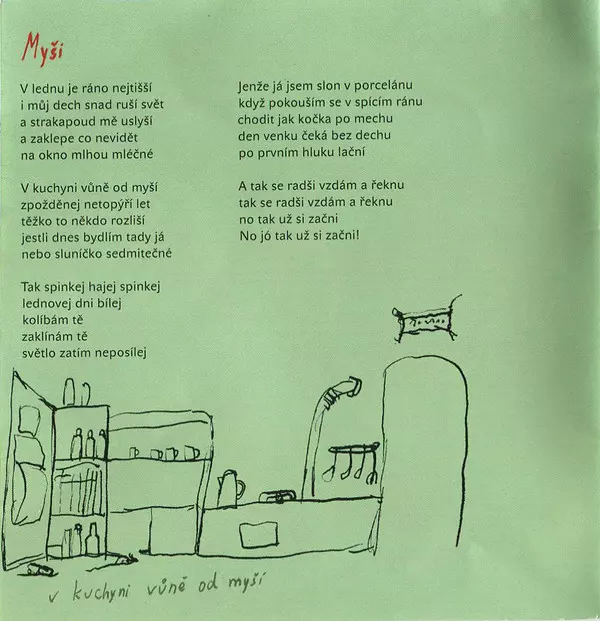 Myši
V lednu je ráno nejtišší
i můj dech snad ruší svět
a strakapoud mě uslyší
a zaklepe co nevidět
na okno mlhou mléčné
V kuchyni vůně od myší
zpožděnej netopýří let
těžko to někdo rozliší
jestli dnes bydlím tady já
nebo sluníčko sedmitečné
Tak spinkej hajej spinkej
lednovej dni bílej
kolíbám tě
zaklínám tě
světlo zatím neposílej
Jenže já jsem slon v porcelánu
když pokouším se v spícím ránu
chodit jak kočka po mechu
den venku čeká bez dechu
po prvním hluku lační
A tak se radši vzdám a řeknu
tak se radši vzdám a řeknu
no tak už si začni
No jó tak už si začni!
v kuchyni vůně od myší